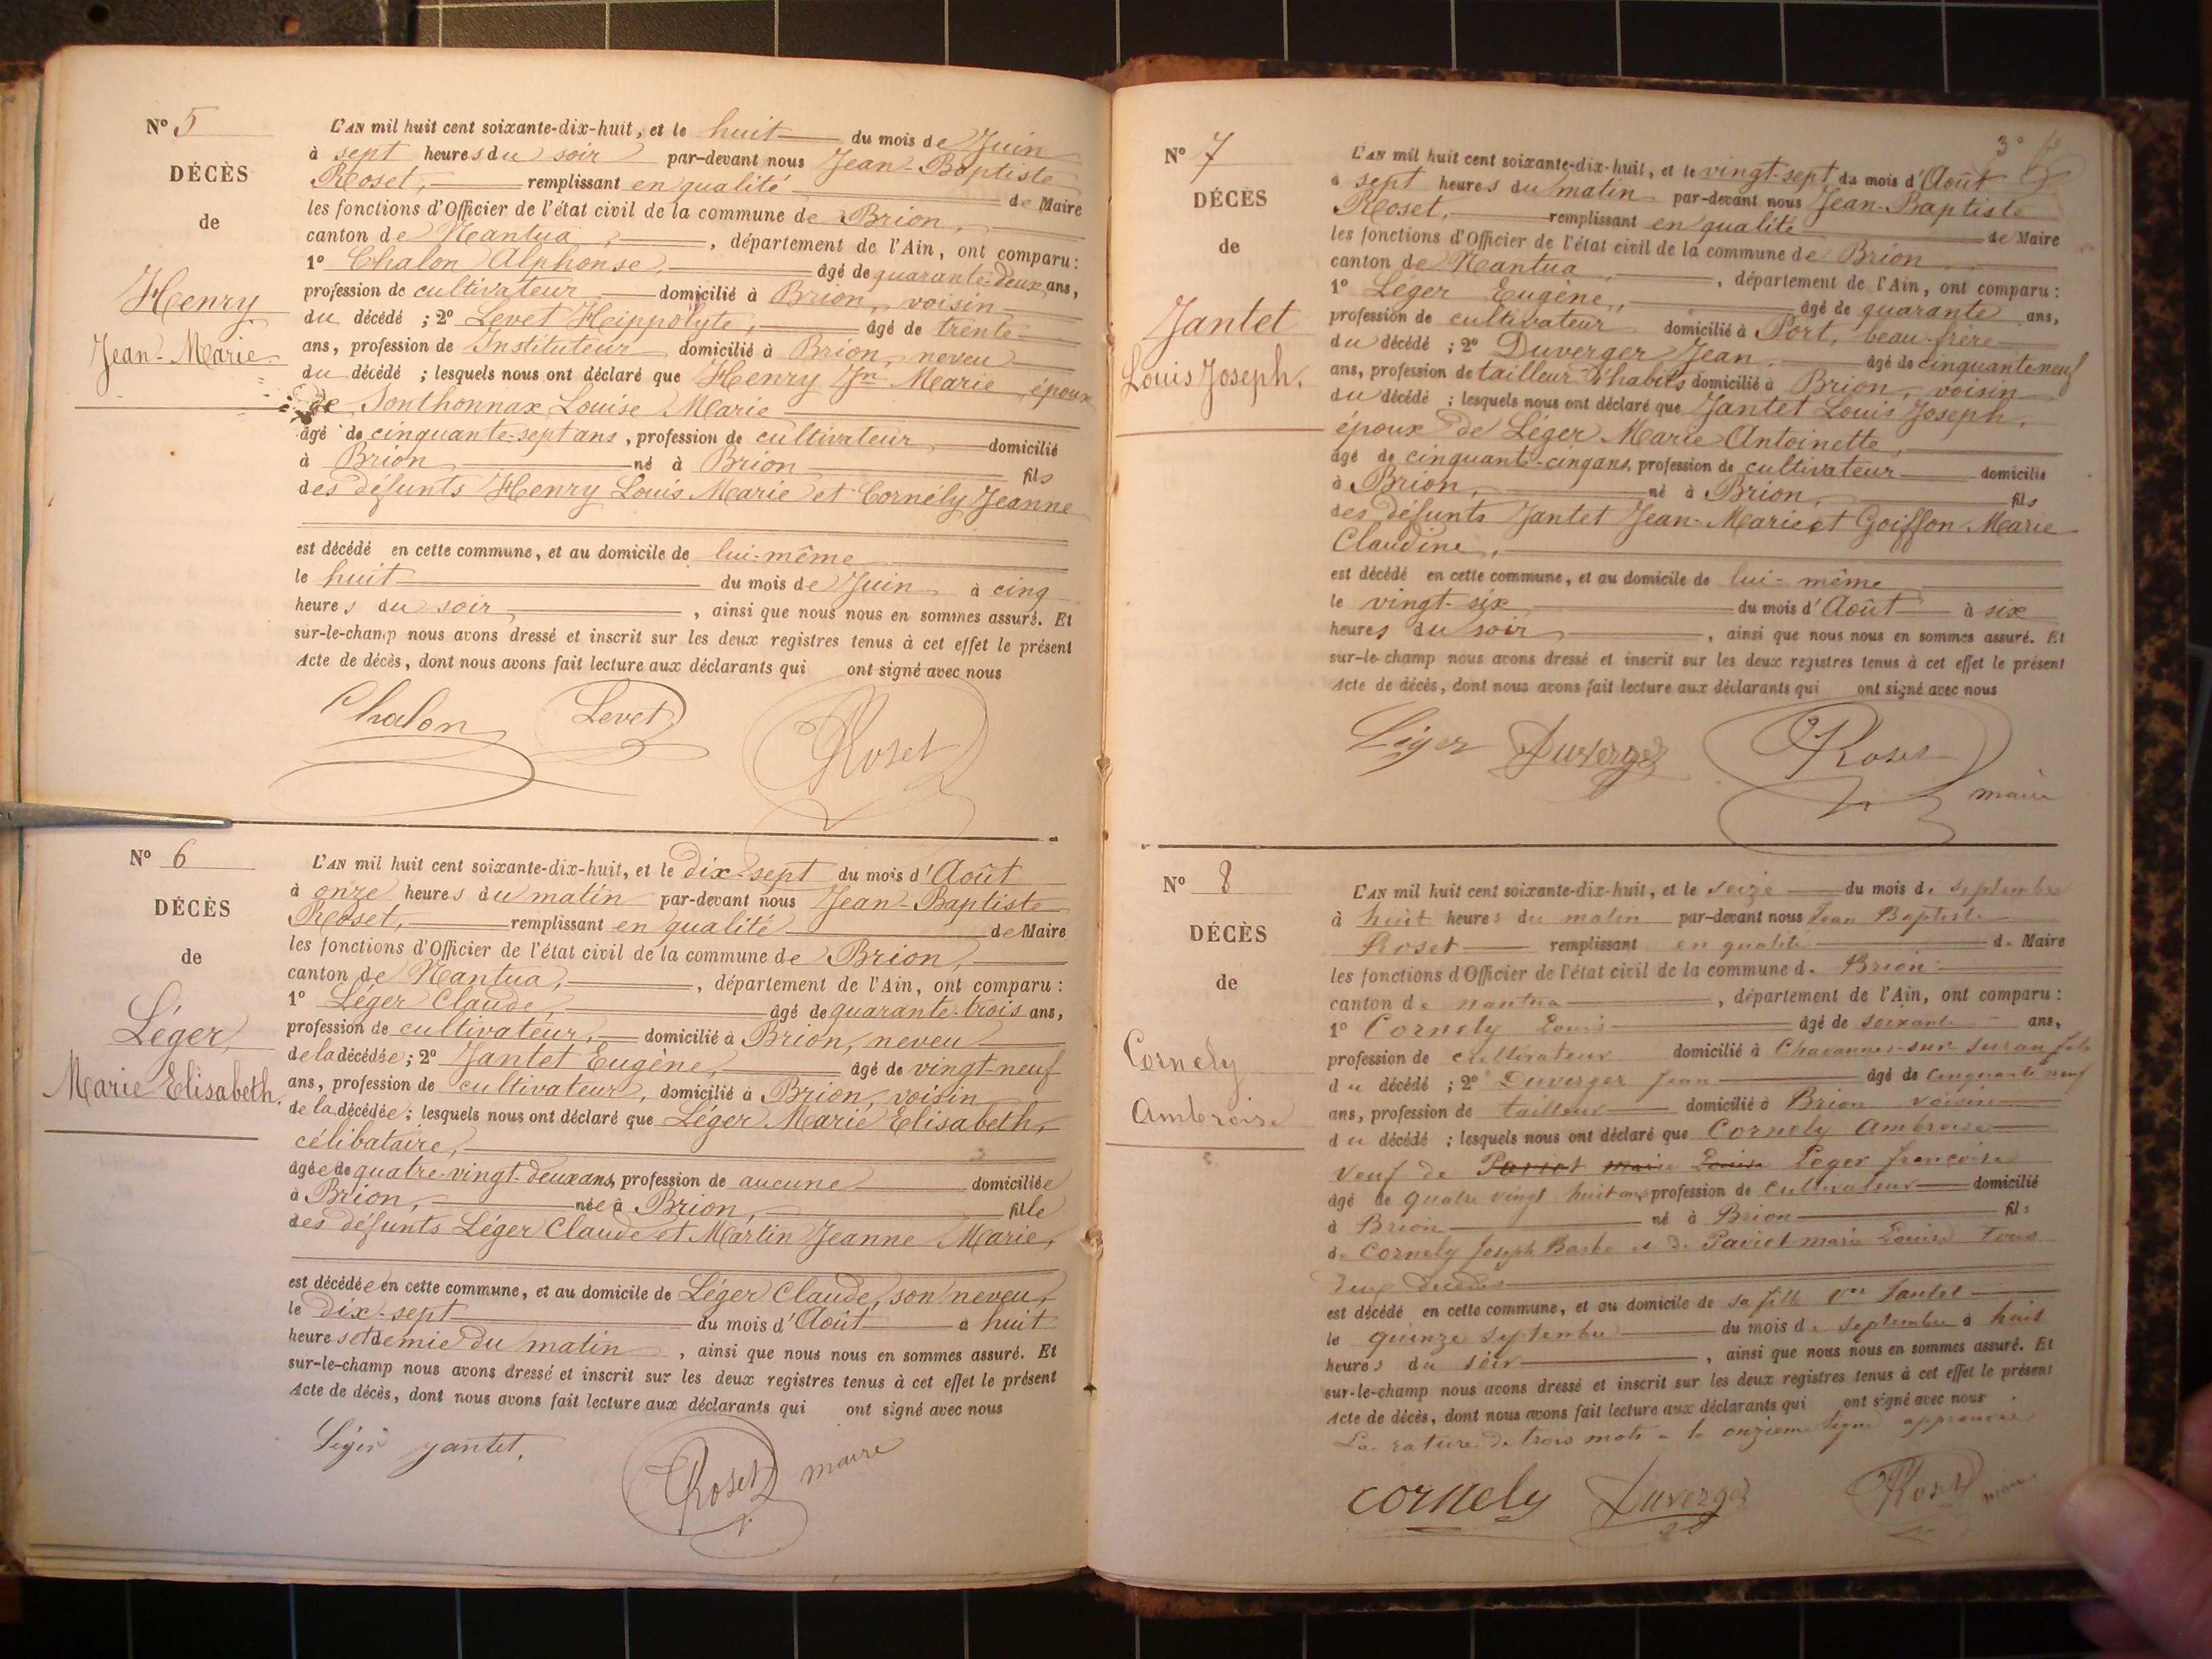 N° 5
DÉCÈS
de
Henry
Jean-Marie
L'AN mil huit cent soixante-dix-huit, et le huit du mois de Juin
à sept heures du soir par-devant nous Jean-Baptiste
Roset, remplissant en qualité de Maire
les fonctions d'Officier de l'état civil de la commune de Brion,
canton de Nantua, département de l'Ain, ont comparu :
1° Chalon Alphonse, âgé de quarante-deux ans,
profession de cultivateur domicilié à Brion, voisin
du décédé ; 2° Levet Heippolyte, âgé de trente
ans, profession de Instituteur domicilié à Brion, neveu
du décédé ; lesquels nous ont déclaré que Henry Jn Marie, époux
de Sonthonnax Louise Marie
âgé de cinquante-sept ans, profession de cultivateur domicilié
à Brion, né à Brion fils
des défunts Henry Louis Marie et Cornély Jeanne
est décédé en cette commune, et au domicile de lui-même
le huit du mois de Juin à cinq
heures du soir, ainsi que nous nous en sommes assuré. Et
sur-le-champ nous avons dressé et inscrit sur les deux registres tenus à cet effet le présent
Acte de décès, dont nous avons fait lecture aux déclarants qui ont signé avec nous
Chalon Levet Roset
N° 6
DÉCÈS
de
Léger,
Marie Elisabeth.
L'AN mil huit cent soixante-dix-huit, et le dix-sept du mois d'Août
à onze heures du matin par-devant nous Jean-Baptiste
Roset, remplissant en qualité de Maire
les fonctions d'Officier de l'état civil de la commune de Brion,
canton de Nantua, département de l'Ain, ont comparu :
1° Léger Claude, âgé de quarante-trois ans,
profession de cultivateur, domicilié à Brion, neveu
de la décédée ; 2° Jantet Eugène, âgé de vingt-neuf
ans, profession de cultivateur, domicilié à Brion, voisin
de la décédée ; lesquels nous ont déclaré que Léger Marie Elisabeth,
célibataire,
âgée de quatre-vingt-deux ans, profession de aucune domiciliée
à Brion, née à Brion, fille
des défunts Léger Claude et Martin Jeanne Marie,
est décédée en cette commune, et au domicile de Léger Claude, son neveu,
le dix-sept du mois d'Août à huit
heures et demie du matin, ainsi que nous nous en sommes assuré. Et
sur-le-champ nous avons dressé et inscrit sur les deux registres tenus à cet effet le présent
Acte de décès, dont nous avons fait lecture aux déclarants qui ont signé avec nous
Léger jantet. Roset maire
3°
N° 7
DÉCÈS
de
Jantet
Louis Joseph.
L'AN mil huit cent soixante-dix-huit, et le vingt-sept du mois d'Août
à sept heures du matin par-devant nous Jean-Baptiste
Roset, remplissant en qualité de Maire
les fonctions d'Officier de l'état civil de la commune de Brion
canton de Nantua, département de l'Ain, ont comparu :
1° Léger Eugène, âgé de quarante ans,
profession de cultivateur domicilié à Port, beau-frère
du décédé ; 2° Duverger Jean, âgé de cinquante-neuf
ans, profession de tailleur d'habits domicilié à Brion, voisin
du décédé ; lesquels nous ont déclaré que Jantet Louis Joseph,
époux de Léger Marie Antoinette,
âgé de cinquante-cinq ans, profession de cultivateur domicilié
à Brion, né à Brion, fils
des défunts Jantet Jean-Marie et Goiffon Marie
Claudine,
est décédé en cette commune, et au domicile de lui-même
le vingt-six du mois d'Août à six
heures du soir, ainsi que nous nous en sommes assuré. Et
sur-le-champ nous avons dressé et inscrit sur les deux registres tenus à cet effet le présent
Acte de décès, dont nous avons fait lecture aux déclarants qui ont signé avec nous
Léger Duverger Roset
maire
N° 8
DÉCÈS
de
Cornely
Ambroise
L'AN mil huit cent soixante-dix-huit, et le seize du mois de septembre
à huit heures du matin par-devant nous Jean Baptiste
Roset remplissant en qualité de Maire
les fonctions d'Officier de l'état civil de la commune de Brion
canton de nantua, département de l'Ain, ont comparu :
1° Cornely Louis âgé de soixante ans,
profession de cultivateur domicilié à Chavannes-sur-suran fils
du décédé ; 2° Duverger Jean âgé de cinquante neuf
ans, profession de tailleur domicilié à Brion voisin
du décédé ; lesquels nous ont déclaré que Cornely Ambroise
veuf de Pariot marie Louise Leger françoise
âgé de quatre vingt huit ans profession de cultivateur domicilié
à Brion né à Brion fils
de Cornely Joseph Barbe et de Paviot marie Louise tous
deux décédés
est décédé en cette commune, et au domicile de sa fille Vve Jantet
le quinze septembre du mois de septembre à huit
heures du soir, ainsi que nous nous en sommes assuré. Et
sur-le-champ nous avons dressé et inscrit sur les deux registres tenus à cet effet le présent
Acte de décès, dont nous avons fait lecture aux déclarants qui ont signé avec nous
La rature de trois mots à la onzieme ligne approuvée
cornely Duverger Roset maire